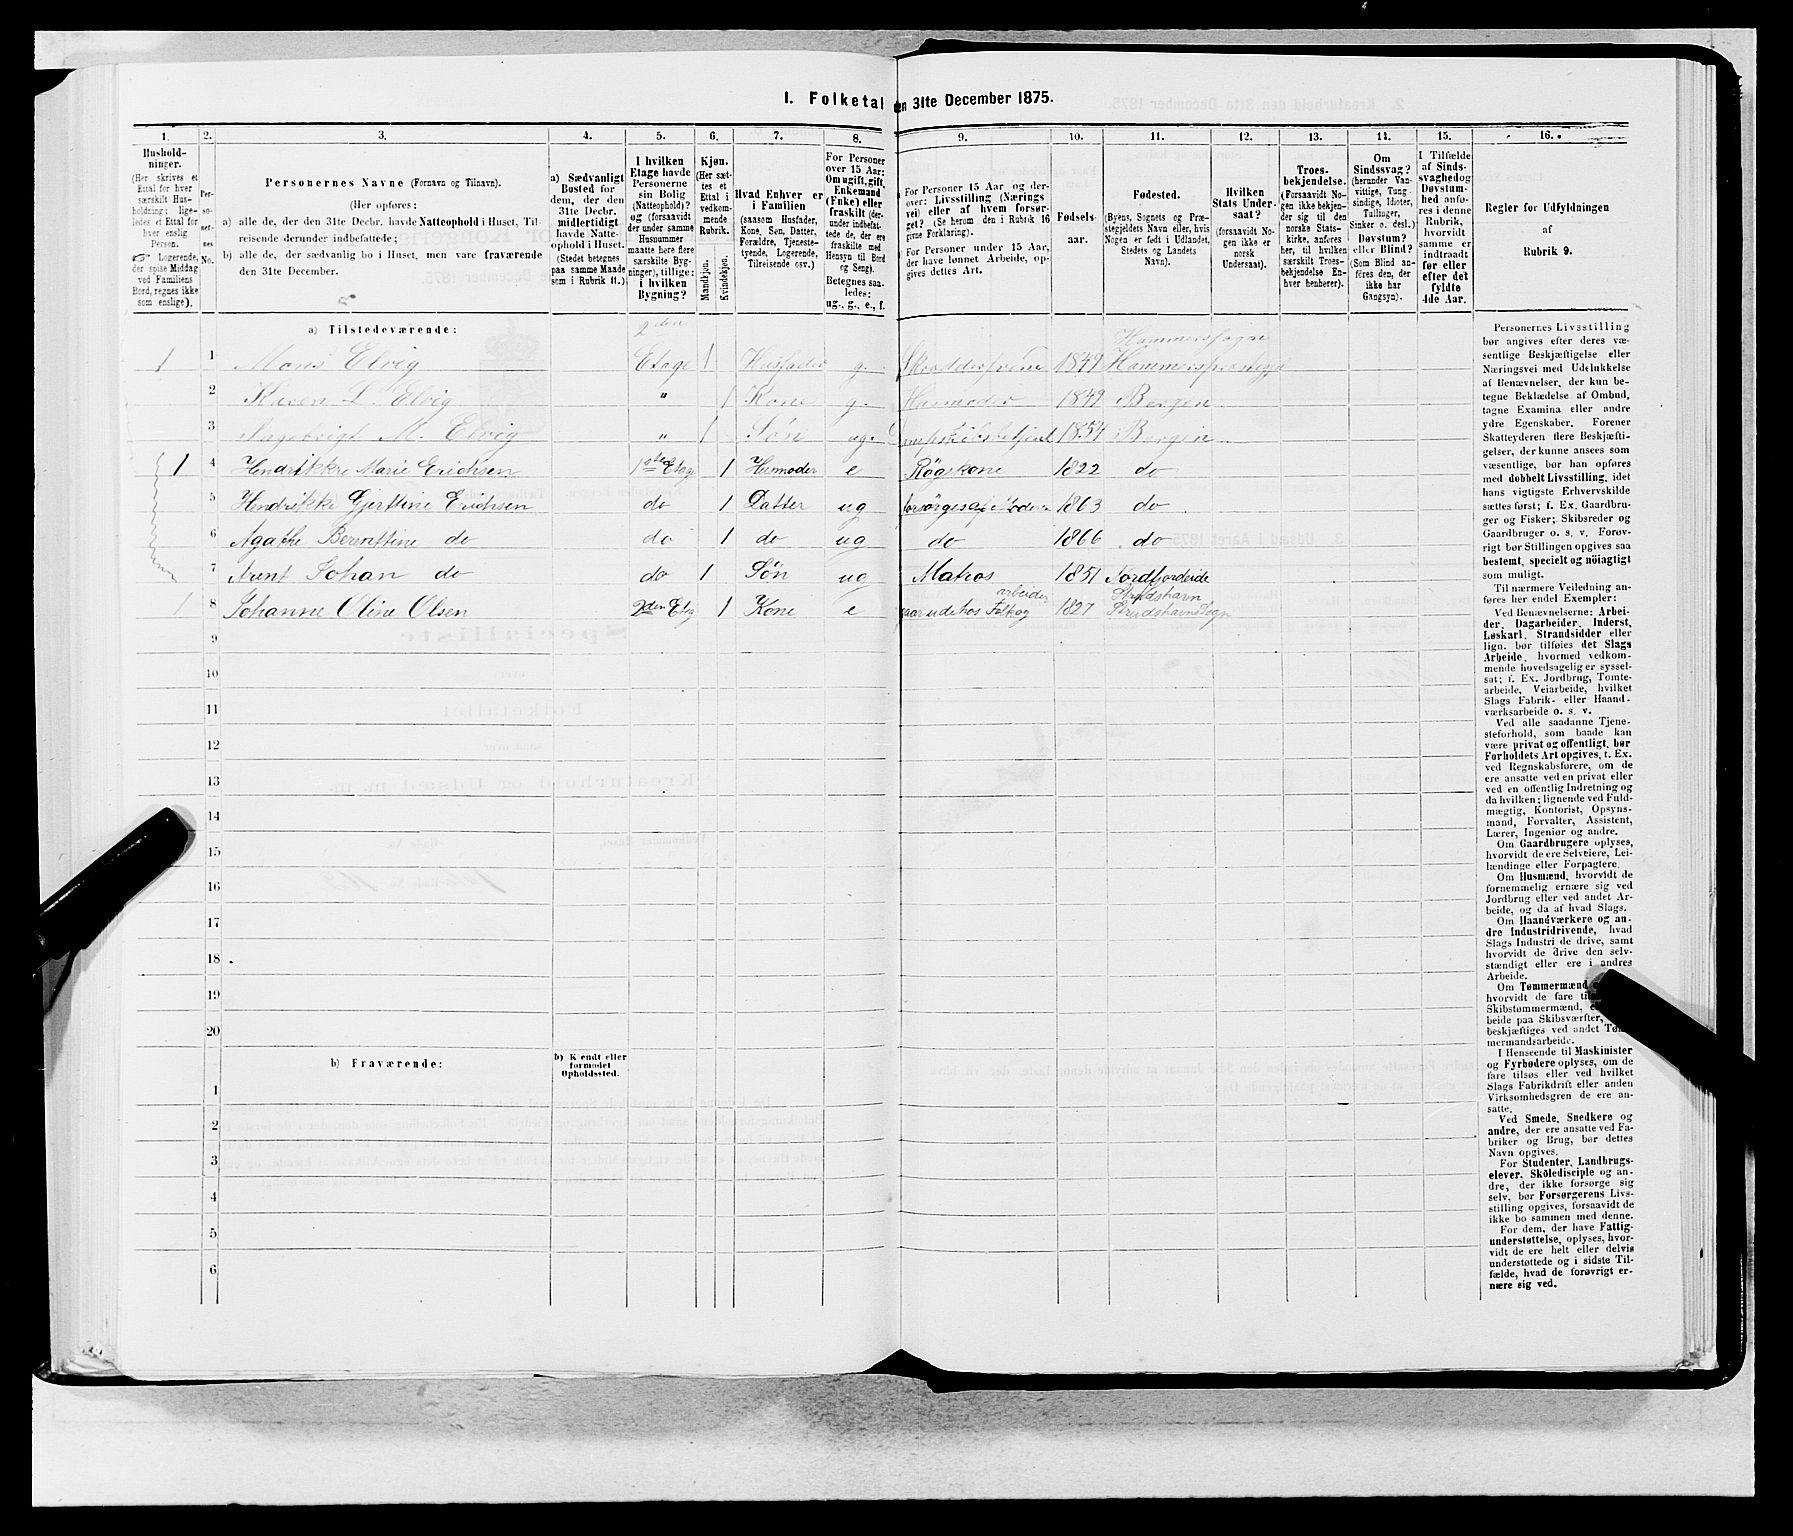 I. Folketal
en 31te December 1875.
1. 2. 3. 4. 5. 6. 7. 8. 9. 10. 11. 12. 13. 14. 15. 16.
Hushold-
ninger.
(Her skrives et
Ettal for hver
særskilt Hus-
holdning; lige-
ledes et Ettal for
hver enslig
Person.
Logerende,
der spise Middag
ved Familiens
Bord, regnes ikke
som enslige).
Per-
so-
ner-
nes
No.
Personernes Navne (Fornavn og Tilnavn).
(Her opføres:
a) alle de, der den 31te Decbr. havde Natteophold i Huset, Til-
reisende derunder indbefattede;
b) alle de, der sædvanlig bo i Huset, men vare fraværende
den 31te December.
a) Sædvanligt
Bosted for
dem, der den
31te Decbr.
midlertidigt
havde Natte-
ophold i Huset.
(Stedet betegnes
paa samme Maade
som i Rubrik 11.)
I hvilken
Etage havde
Personerne
sin Bolig
(Natteophold)?
og (forsaavidt
der under samme
Husnummer
maatte høre flere
særskilte Byg-
ninger), tillige:
i hvilken
Bygning?
Kjøn.
(Her sæt-
tes et
Ettal i
vedkom-
mende
Rubrik.
Mandkjøn.
Kvindekjøn.
Hvad Enhver er
i Familien
(saasom Husfader,
Kone, Søn, Datter,
Forældre, Tjeneste-
tyende, Logerende,
Tilreisende osv.)
For Personer
over 15 Aar:
Om ugift, gift,
Enkemand
(Enke) eller
fraskilt (der-
under indbefat-
tede de, der ere
fraskilte med
Hensyn til Bord
og Seng).
Betegnes saa-
ledes:
ug., g., e., f.
For Personer 15 Aar og der-
over: Livsstilling (Nærings
vei) eller af hvem forsør-
get? (Se herom den i Rubrik 16
givne Forklaring).
For Personer under 15 Aar,
der have lønnet Arbeide, op-
gives dettes Art.
Fødsels-
aar.
Fødested.
(Byens, Sognets og Præ-
stegjeldets Navn eller, hvis
Nogen er født i Udlandet,
Stedets og Landets
Navn).
Hvilken
Stats Under-
saat?
(forsaavidt No-
gen ikke er
norsk
Undersaat).
Troes-
bekjendelse.
(Forsaavidt No-
gen ikke bekjen-
der sig til den
norske Stats-
kirke, anføres
her, til hvilken
særskilt Troes-
bekjendelse En-
hver henhører).
Om
Sindssvag?
(herunder Van-
vittige, Tung-
sindige, Idioter,
Tullinger,
Sinker o. desl.)
Døvstum?
eller Blind?
(Som Blind an-
føres den, der
ikke har
Gangsyn).
I Tilfælde
af Sinds-
svaghed og
Døvstum-
hed anfø-
res i denne
Rubrik,
hvorvidt
samme er
indtraadt
før eller
efter det
fyldte
4de Aar.
Regler for Udfyldningen
af
Rubrik 9.
a) Tilstedeværende:
2den Hammersogne
1 1 Mons Elvig Etage 1 Husfader g. 1849
2 Karen L. Elvig " 1 Kone g. Husmoder 1849 Bergen
3 M. Elvig " 1 Søn ug. 1854 Bergen
1 4 Hendrikke Marie Erichsen 1ste Etage 1 Husmoder e Røgtkone 1822 do
5 Hendrikke Gjertine Erichsen do 1 Datter ug forsørges af Moderen 1863 do
6 Agathe Berentine do do 1 do ug do 1866 do
7 Arent Johan do do 1 Søn ug Matros 1851 Nordfjordeide
arbeider
1 8 Johanne Oline Olsen 2den Etag 1 Kone e ude hos Folk og 1827
9
10
11
12
13
14
15
16
17
18
19
20
b) Fraværende:
b) Kjendt eller
formodet
Opholdssted.
1
2
3
4
5
6
Personernes Livsstilling
bør angives efter deres væ-
sentlige Beskjæftigelse eller
Næringsvei med Udelukkelse
af Benævnelser, der kun be-
tegne Beklædelse af Ombud,
tagne Examina eller andre
ydre Egenskaber. Forener
Skatteyderen flere Beskjæfti-
gelser, der kunne ansees som
væsentlige, bør han opføres
med dobbelt Livsstilling, idet
hans vigtigste Erhvervskilde
sættes først; f. Ex. Gaardbru-
ger og Fisker; Skibsreder og
Gaardbruger o. s. v. Forøv-
rigt bør Stillingen opgives saa
bestemt, specielt og nöiagtigt
som muligt.
Til nærmere Veiledning an-
føres her endel Exempler:
Ved Benævnelserne: Arbei-
der, Dagarbeider, Inderst,
Løskarl, Strandsidder eller
lign. bør tilføies det Slags
Arbeide, hvormed vedkom-
mende hovedsagelig er syssel-
sat; f. Ex. Jordbrug, Tomte-
arbeide, Veiarbeide, hvilket
Slags Fabrik- eller Haand-
værksarbeide o. s. v.
Ved alle saadanne Tjene-
steforhold, som baade kan
være privat og offentligt, bør
Forholdets Art opgives, t. Ex.
ved Regnskabsførere, om de
ere ansatte ved en privat eller
ved en offentlig Indretning og
da hvilken; lignende ved Fuld-
mægtig, Kontorist, Opsyns-
mand, Forvalter, Assistent,
Lærer, Ingeniør og andre.
Om Gaardbrugere oplyses,
hvorvidt de ere Selveiere, Lei-
lændinge eller Forpagtere.
Om Husmænd, hvorvidt de
fornemmelig ernære sig ved
Jordbrug eller ved andet Ar-
beide, og da af hvad Slags.
Om Haandværkere og an-
dre Industridrivende, hvad
Slags Industri de drive, samt
hvorvidt de drive den selv-
stændigt eller ere i andres
Arbeide.
Om Tømmermænd
hvorvidt de fare
Skibstømmermænd,
beide paa Skibsværfter,
beskjæftiges ved andet
mermandsarbeide.
I Henseende til Maskinister
og Fyrbødere oplyses, om de
fare tilsøs eller ved hvilket
Slags Fabrikdrift eller anden
Virksomhedsgren de ere an-
satte.
Ved Smede, Snedkere og
andre, der ere ansatte ved Fa-
briker og Brug, bør dettes
Navn opgives.
For Studenter, Landbrugs-
elever, Skoledisciple og an-
dre, der ikke forsørge sig
selv, bør Forsørgerens Livs-
stilling opgives, forsaavidt de
ikke bo sammen med denne.
For dem, der have Fattig-
understøttelse, oplyses, hvor-
vidt de ere helt eller delvis
understøttede og i sidste Til-
fælde, hvad de forøvrigt er-
nære sig ved.